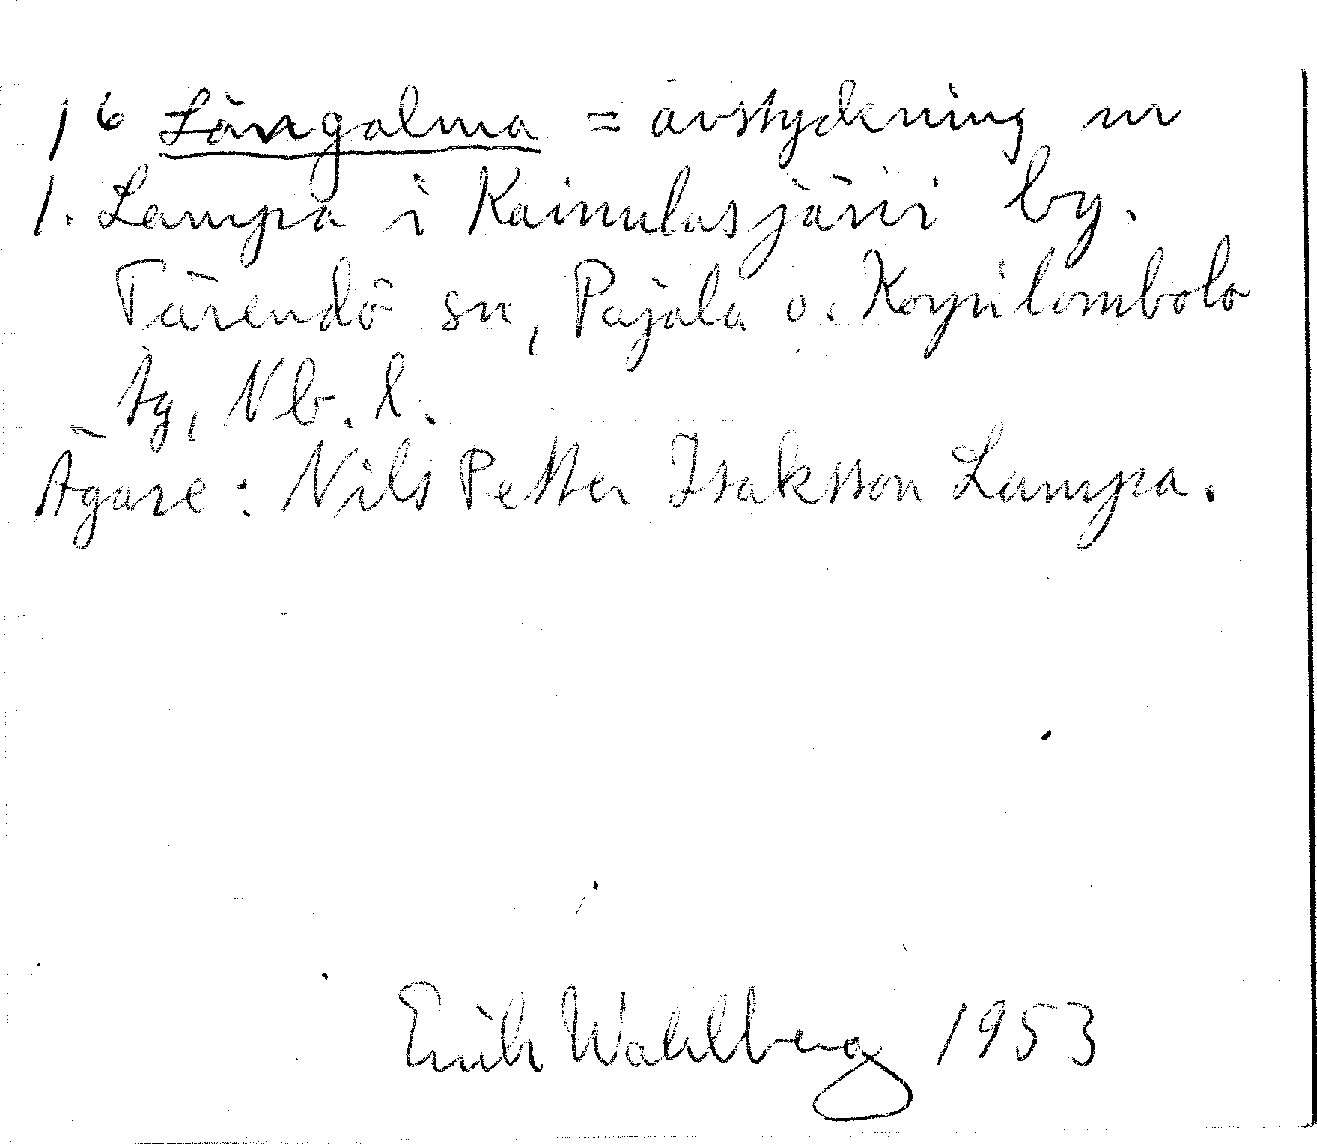 1 6 Långalma = avstyckning nr
1. Lampa i Kainulasjärvi by.
Tärendö sn, Pajala o. Korpilombolo
tg, Nb. l.
Ägare: Nils Petter Isaksson Lampa.
Erik Wahlberg 1953